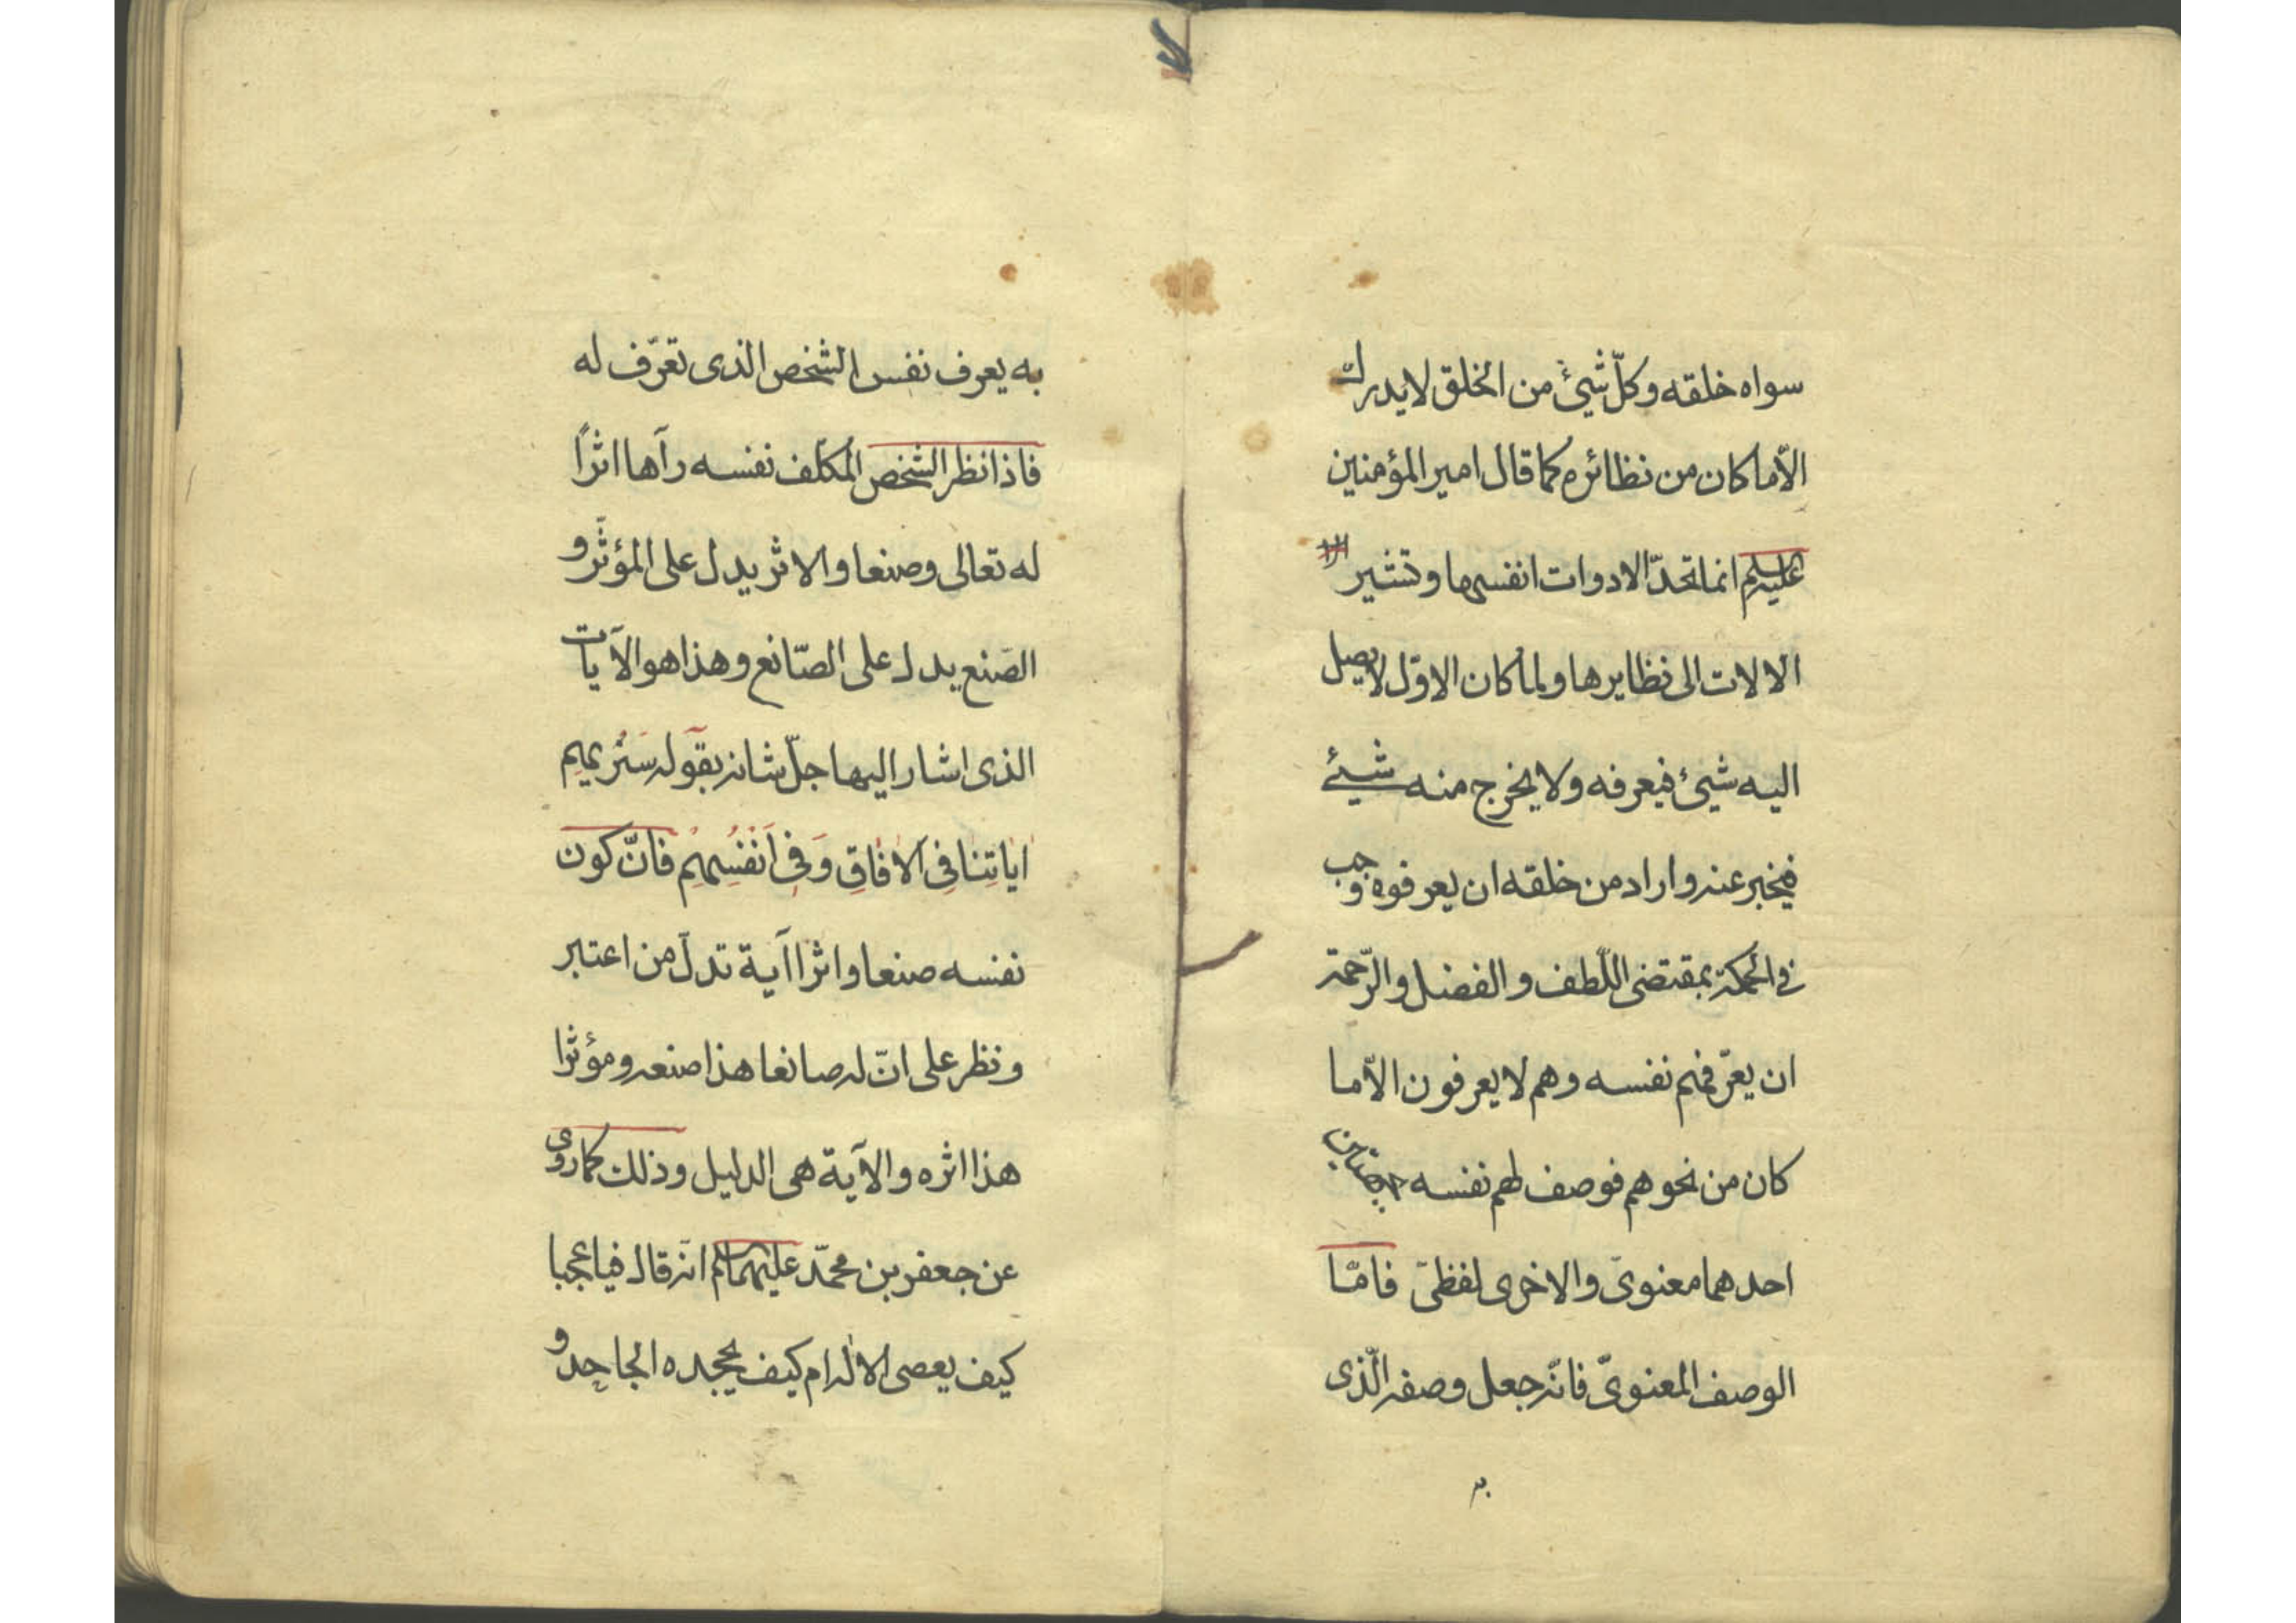 سواه خلقه وكلّ شيئ من الخلق لايدرك
الّا ما كان من نظائره كما قال امير المؤمنين
عليه السلم انما تحدّ الادوات انفسها وتشير
الالات الى نظايرها ولما كان الاوّل لا يصل
اليه شيئ فيعرفه ولا يخرج منه شيئ
فيخبر عنه واراد من خلقه ان يعرفوه وجب
فى الحكمة بمقتضى اللّطف والفضل والرّحمة
ان يعرّفهم نفسه وهم لا يعرفون الّا ما
كان من نحوهم فوصف لهم نفسه بوصفين
احدهما معنوىّ والاخرى لفظىّ فامّا
الوصف المعنوىّ فانّه جعل وصفه الّذى
به
به يعرف نفس الشخص الذى تعرّف له
فاذا نظر الشخص المكلّف نفسه رآها اثرًا
له تعالى وصنعا والاثر يدل على المؤثّر و
الصَنع يدل على الصّانع وهذا هو الآيات
الذى اشار اليها جلّ شانه بقوله سَنُريهِم
اياتِنا فِى الافاقِ وَفِى اَنْفُسِهِم فانّ كون
نفسه صنعا واثرا آية تدلّ من اعتبر
ونظر على انّ له صانعا هذا صنعه ومؤثرا
هذا اثره والآية هى الدليل وذلك كما روى
عن جعفر بن محمّد عليهما السلم انه قال فيا عجبا
كيف يعصى الاله ام كيف يجحده الجاحد و